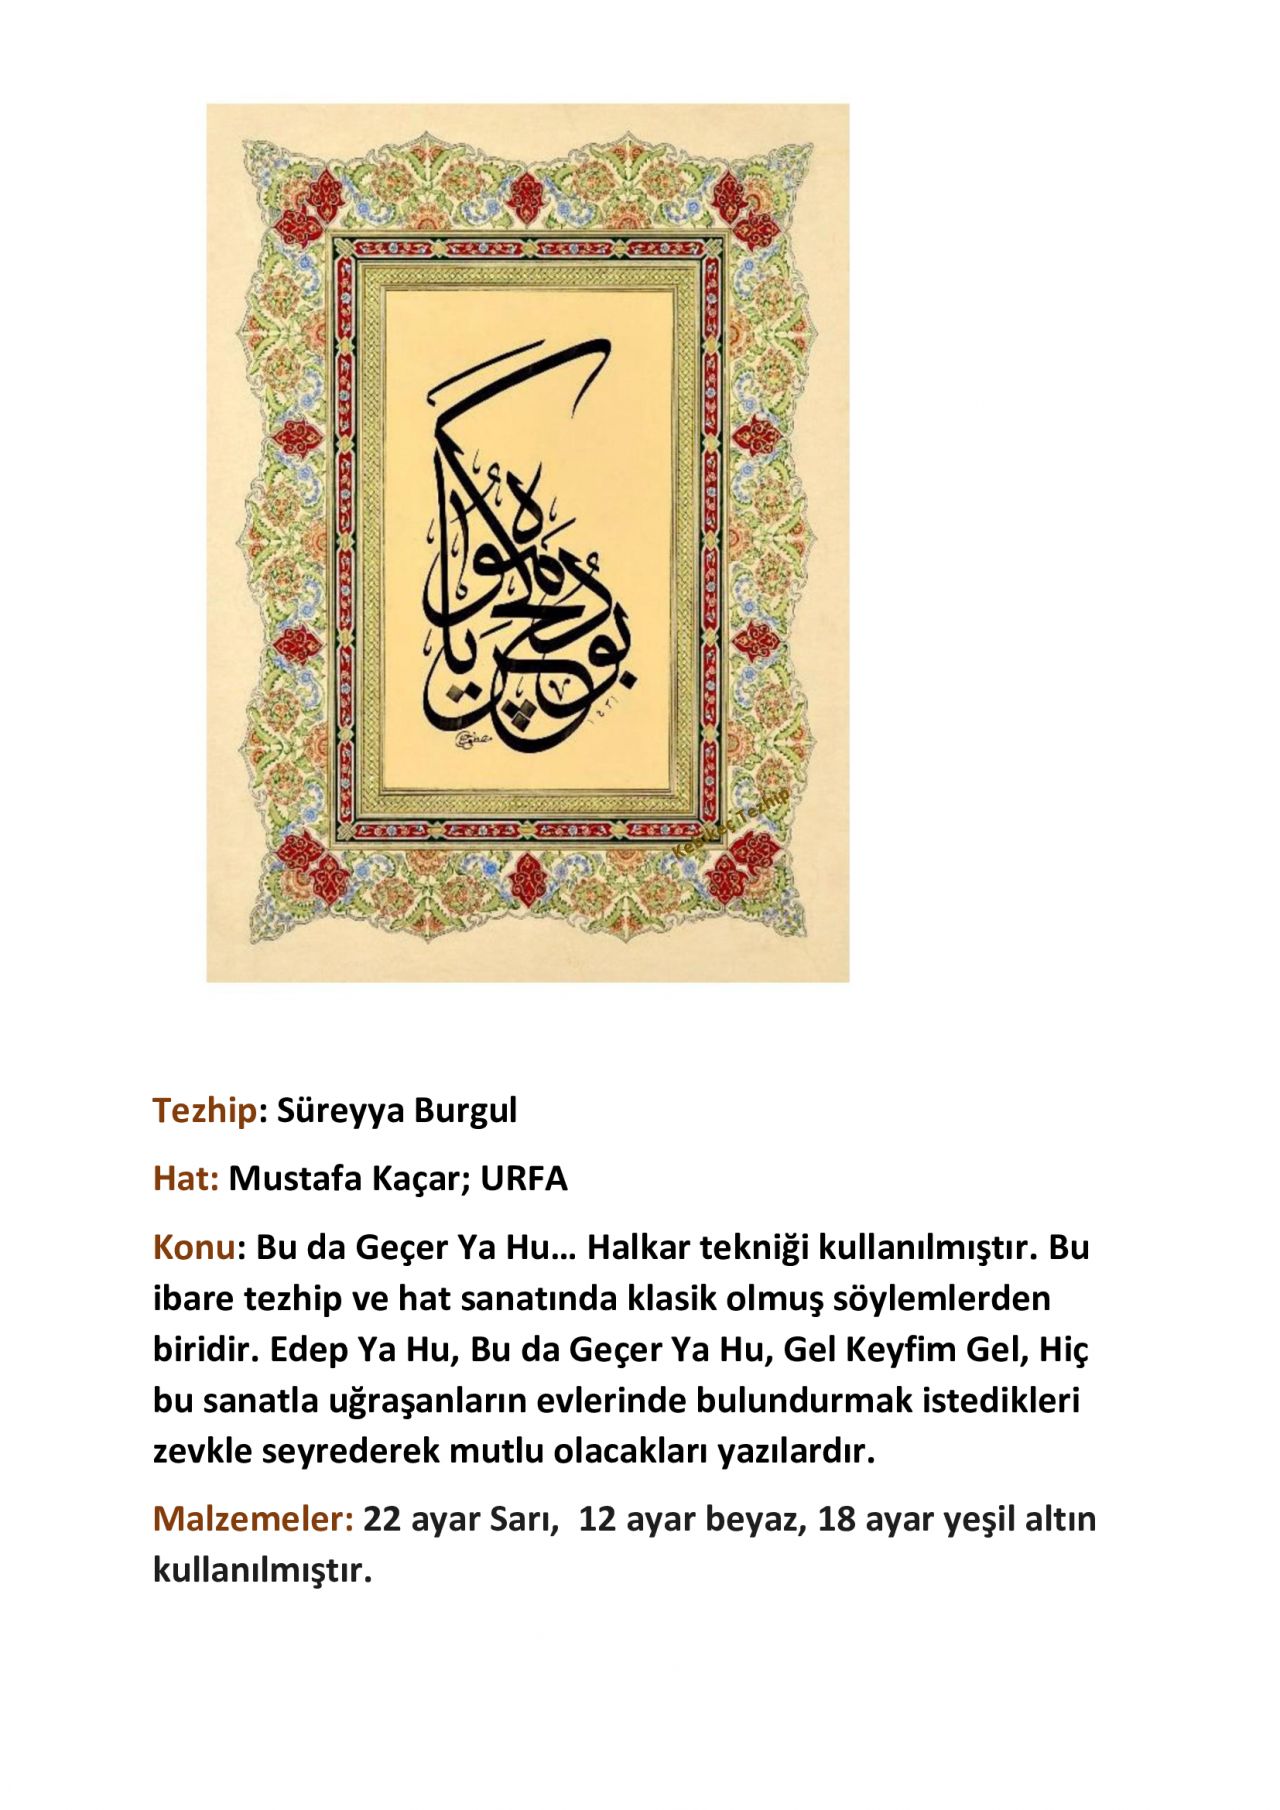 بو ده گچر يا هو
١٤٣١
Kebikeç Tezhip
Tezhip: Süreyya Burgul
Hat: Mustafa Kaçar; URFA
Konu: Bu da Geçer Ya Hu… Halkar tekniği kullanılmıştır. Bu
ibare tezhip ve hat sanatında klasik olmuş söylemlerden
biridir. Edep Ya Hu, Bu da Geçer Ya Hu, Gel Keyfim Gel, Hiç
bu sanatla uğraşanların evlerinde bulundurmak istedikleri
zevkle seyrederek mutlu olacakları yazılardır.
Malzemeler: 22 ayar Sarı,  12 ayar beyaz, 18 ayar yeşil altın
kullanılmıştır.